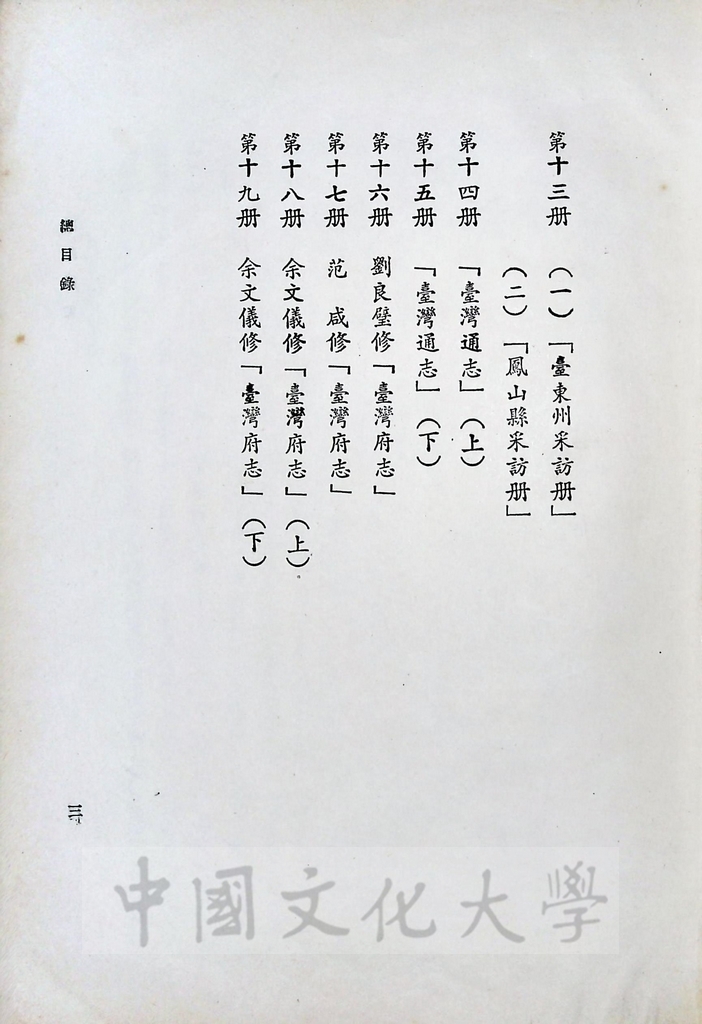 第十三册　（一）「臺東州采訪册」
（二）「鳳山縣采訪册」
第十四册　「臺灣通志」（上）
第十五册　「臺灣通志」（下）
第十六册　劉良璧修「臺灣府志」
第十七册　范　咸修「臺灣府志」
第十八册　余文儀修「臺灣府志」（上）。
第十九册　余文儀修「臺灣府志」（下）
總目錄
三
中國文化大學